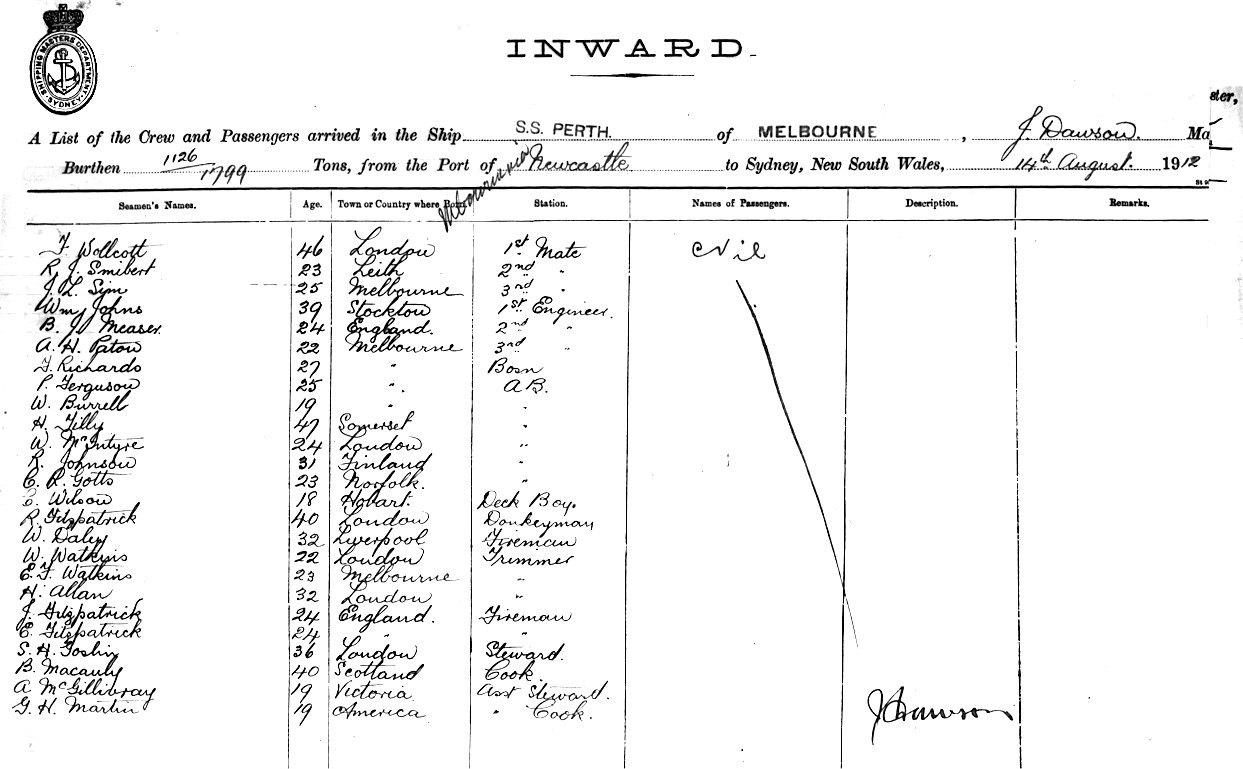 SHIPPING MASTERS DEPARTMENT. SYDNEY
INWARD.
ster,
A List of the Crew and Passengers arrived in the Ship S.S. PERTH. of MELBOURNE, J. Dawson. Ma
Burthen 1126/1799 Tons, from the Port of Melbourne via Newcastle to Sydney, New South Wales, 14th August. 1912
Seamen's Names. Age. Town or Country where Born Station. Names of Passengers. Description. Remarks.
F. Wollcott 46 London 1st Mate Nil
R. J. Smibert 23 Leith 2nd "
J. L. Sim 25 Melbourne 3rd "
Wm Johns 39 Stockton 1st Engineer.
B. J. Measer 24 England. 2nd "
A. H. Paton 22 Melbourne 3rd "
F. Richards 27 " Bosn
P. Ferguson 25 " A B.
W. Burrell 19 " "
H. Tilly 47 Somerset "
W. McIntyre 24 London "
R. Johnson 31 Finland "
C. R. Gotts 23 Norfolk. "
C. Wilson 18 Hobart. Deck Boy.
R. Fitzpatrick 40 London Donkeyman
W. Daley 32 Liverpool Fireman
W. Watkins 22 London Trimmer
E. F. Watkins 23 Melbourne "
H. Allan 32 London "
J. Fitzpatrick 24 England. Fireman
E. Fitzpatrick 24 " "
S. H. 36 London Steward.
B. Macauly 40 Scotland Cook.
A McGillivray 19 Victoria Asst Steward.
G. H. Martin 19 America " Cook.
J Dawson